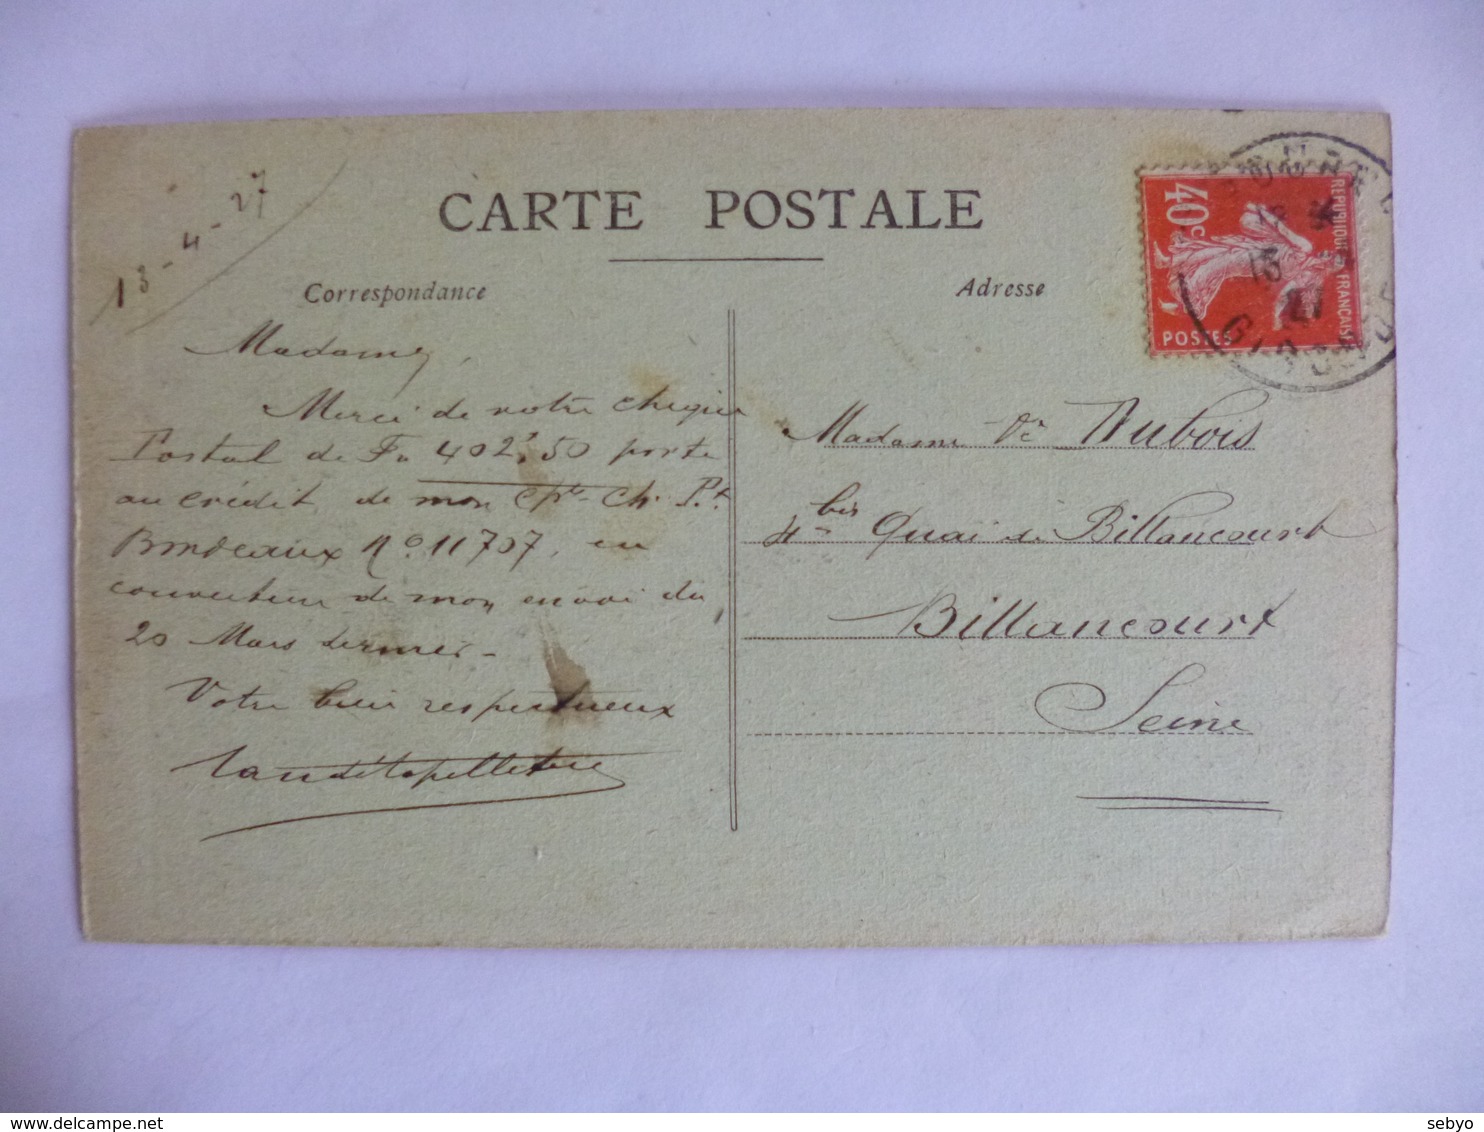 CARTE POSTALE
Correspondance
Adresse
13-4-27
Madame,
Merci de votre chèque
Postal de Fr 402,50 porté
au crédit de mon Cpte Ch. Pt.
Bordeaux No 11707, en
couverture de mon envoi du
20 Mars dernier -
Votre bien respectueux
40c
REPUBLIQUE FRANCAISE
POSTES
13
27
GIRONDE
Madame Ve Dubois
4 bis Quai de Billancourt
Billancourt
Seine
delcampe.net
sebyo